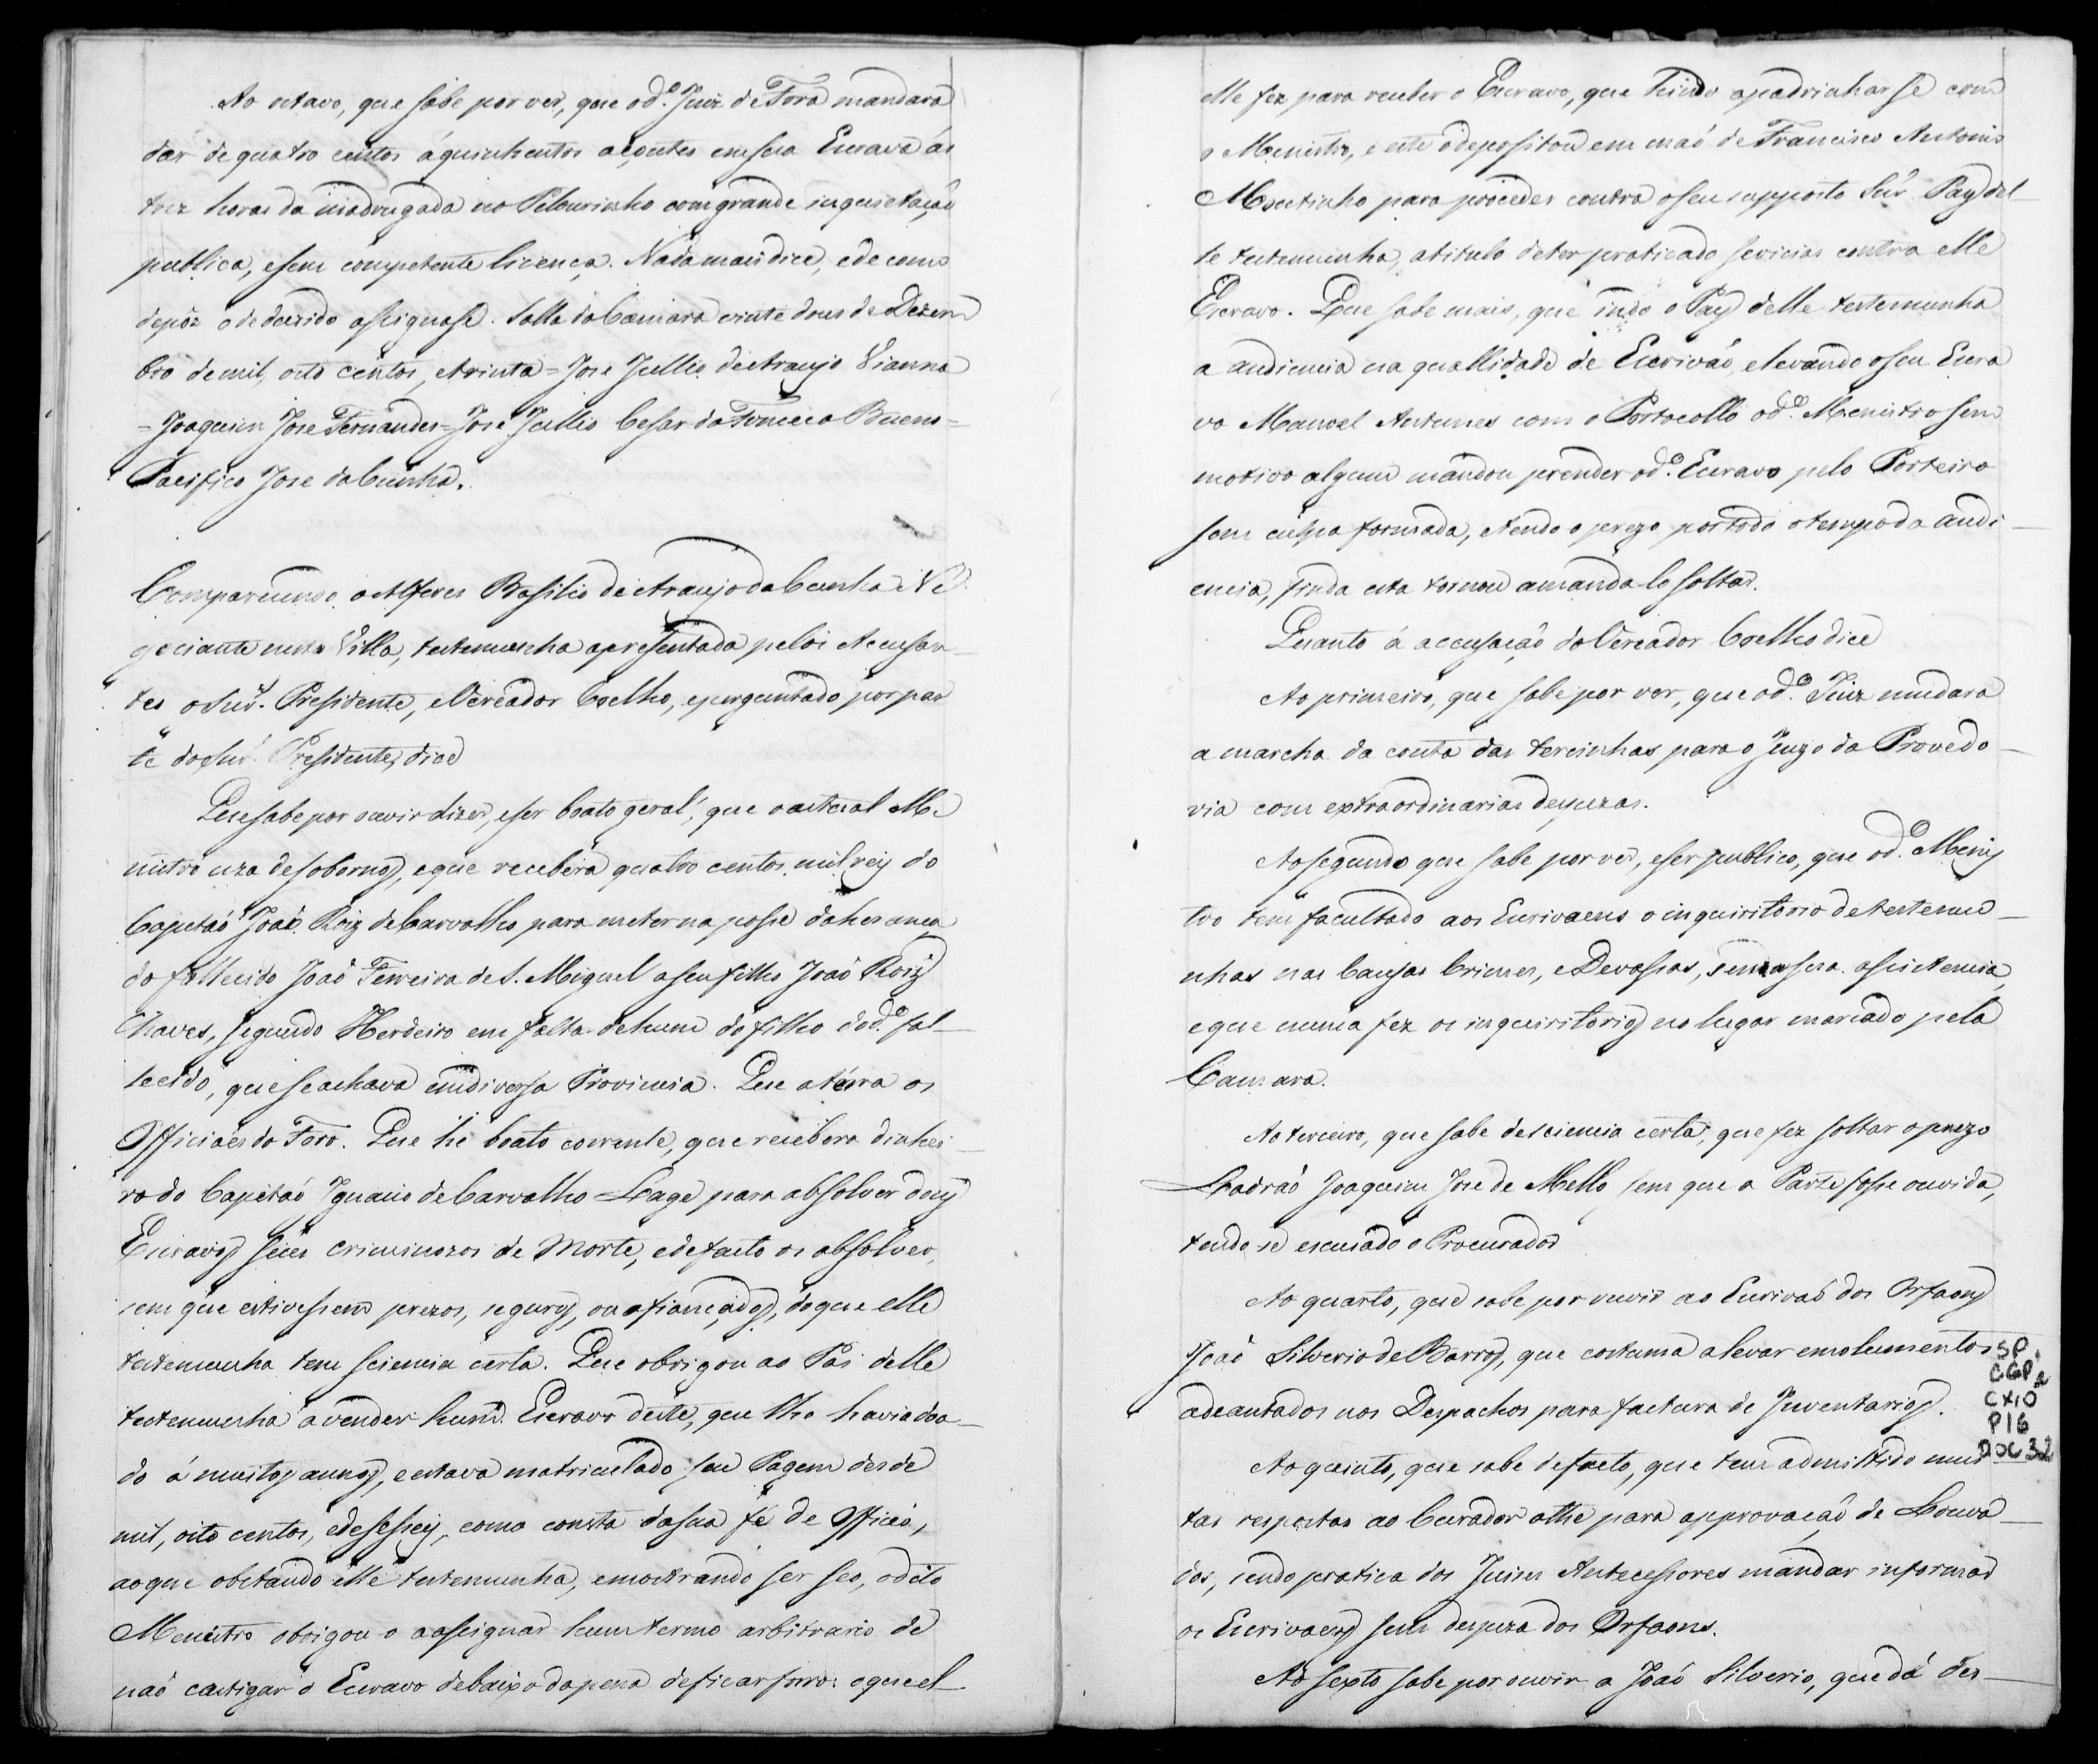 Ao oitavo, que sabe por ver, que o d.º Juiz de Fora mandara
dar de quatro centos á quinhentos açoutes em sua Escrava ás
trez horas da madrugada no Pelourinho com grande inquietação
publica, e sem competente licença. Nada mais dice, e de como
depôz o deduzido assignase. Salla da Camara vinte dous de Dezem
bro de mil, oito centos, e trinta = Jose Jullio de Araujo Vianna
= Joaquim Jose Fernandes = Jose Jullio Cesar da Fonceca Bueno =
Pacifico Jose da Cunha.
Comparecendo o Alferes Basilio de Araujo da Cunha Ne
gociante nesta Villa, testemunha apresentada pelos Accusan-
tes o Snr. Presidente, e Vereador Coelho, e perguntado por par
te do Snr. Presidente, dice
Que sabe por ouvir dizer, e ser boato geral, que o actual Me
nistro uza de sobornos, e que recebera quatro centos mil reis do
Capitaõ Joaõ Roiz de Carvalho para meter na posse da herança
do fallecido Joaõ Ferreira de S. Miguel a seu filho Joaõ Roiz
Chaves, segundo Herdeiro em falta de hum do filho do d.º fal-
lecido, que se achava em diversa Provincia. Que aterra os
Officiaes do Foro. Que hé boato corrente, que recebera dinhei-
ro do Capitaõ Ignacio de Carvalho Lage para absolver dous
Escravos seus criminozos de Morte, e de facto os absolveo,
sem que estivessem prezos, seguros, ou afiançados, do que elle
testemunha tem sciencia certa. Que obrigou ao Pai delle
testemunha a vender hum Escravo deste, que lho havia doa-
do á muitos annos, e estava matriculado seu Pagem desde
mil, oito centos, e desesseis, como consta da sua fé de Officio,
ao que obstando elle testemunha, e mostrando ser seo, o dito
Menistro obrigou-o a assignar hum termo arbitrario de
naõ castigar o Escravo debaixo da pena de ficar forro: o que el-
elle fez, para receber o Escravo, que tendo apadrinhar se com
o Menistro, e este o depositou em maõ de Francisco Antonio
Moutinho para proceder contra o seu supposto Snr. Pay del-
le testemunha, a titulo de ter praticado sevicias contra elle
Escravo. Que sabe mais, que indo o Pay delle testemunha
a audiencia na quallidade de Escrivaõ, e levando o seu Escra
vo Manoel Antunes com o Portocollo o d.º Menistro sem
motivo algum mandou prender o d.º Escravo pelo Porteiro
sem culpa formada, e tendo o prezo por todo o tempo da audi-
encia, finda esta tornou a manda-lo soltar.
Quanto á accusação do Vereador Coelho dice
Ao primeiro, que sabe por ver, que o d.º Juiz mudara
a marcha da conta das tercinhas para o Juizo da Provedo-
ria com extraordinarias despezas.
Ao segundo que sabe por ver, e ser publico, que o d.º Menis
tro tem facultado aos Escrivaens o inquiritorio de testemu-
nhas nas Causas Crimes, e Devassas, sem a sua assistencia,
e que nunca fez os inquiritorios no lugar marcado pela
Camara.
Ao terceiro, que sabe de sciencia certa, que fez soltar o prezo
Ladraõ Joaquim Jose de Mello sem que a Parte fosse ouvida,
tendo se escusado o Procurador
Ao quarto, que sabe por ouvir ao Escrivaõ dos Orfaons
Joaõ Silverio de Barros, que costuma a levar emolumentos
adeantados nos Despachos para factura de Inventarios.
Ao quinto, que sabe de facto, que tem admittido mui
tas respostas ao Curador athe para approvaçaõ de Louva-
dos, sendo pratica dos Juises Antecessores mandar informar
os Escrivaens sem despeza dos Orfaons.
Ao sexto sabe por ouvir a Joaõ Silverio, que dá des-
SP.
CGP2
CX10
P16
DOC 32